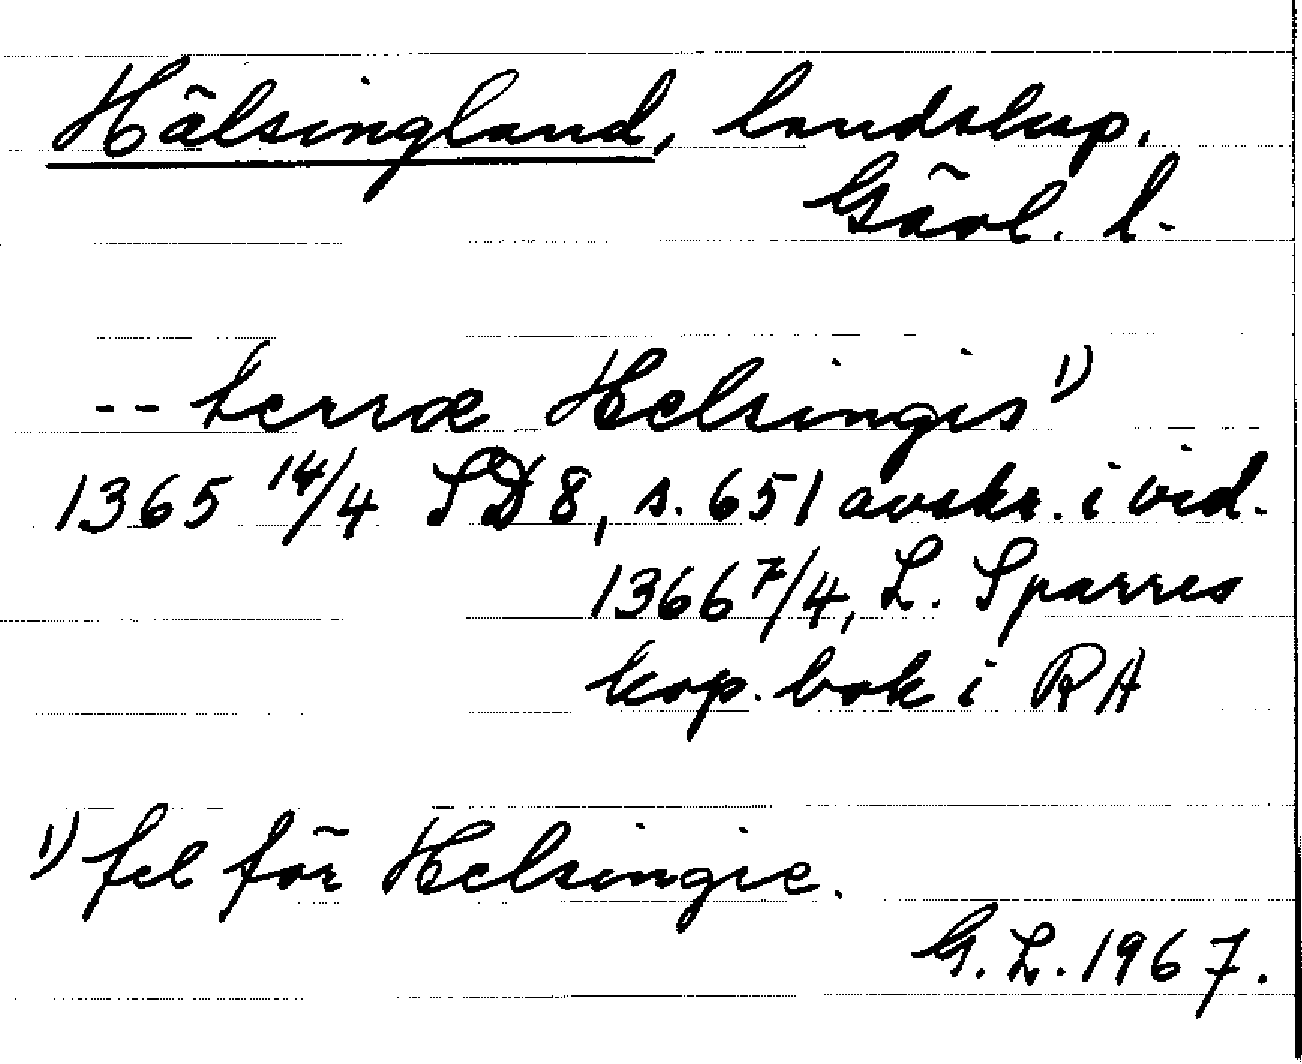 Hälsingland, landskap.
Gävl. l.
-- terræ Helsingis 1)
1365 14/4 SD 8, s. 651 avskr. i vid.
1366 7/4, L. Sparres
kop. bok i RA
1) fel för Helsingie.
G. L. 1967.